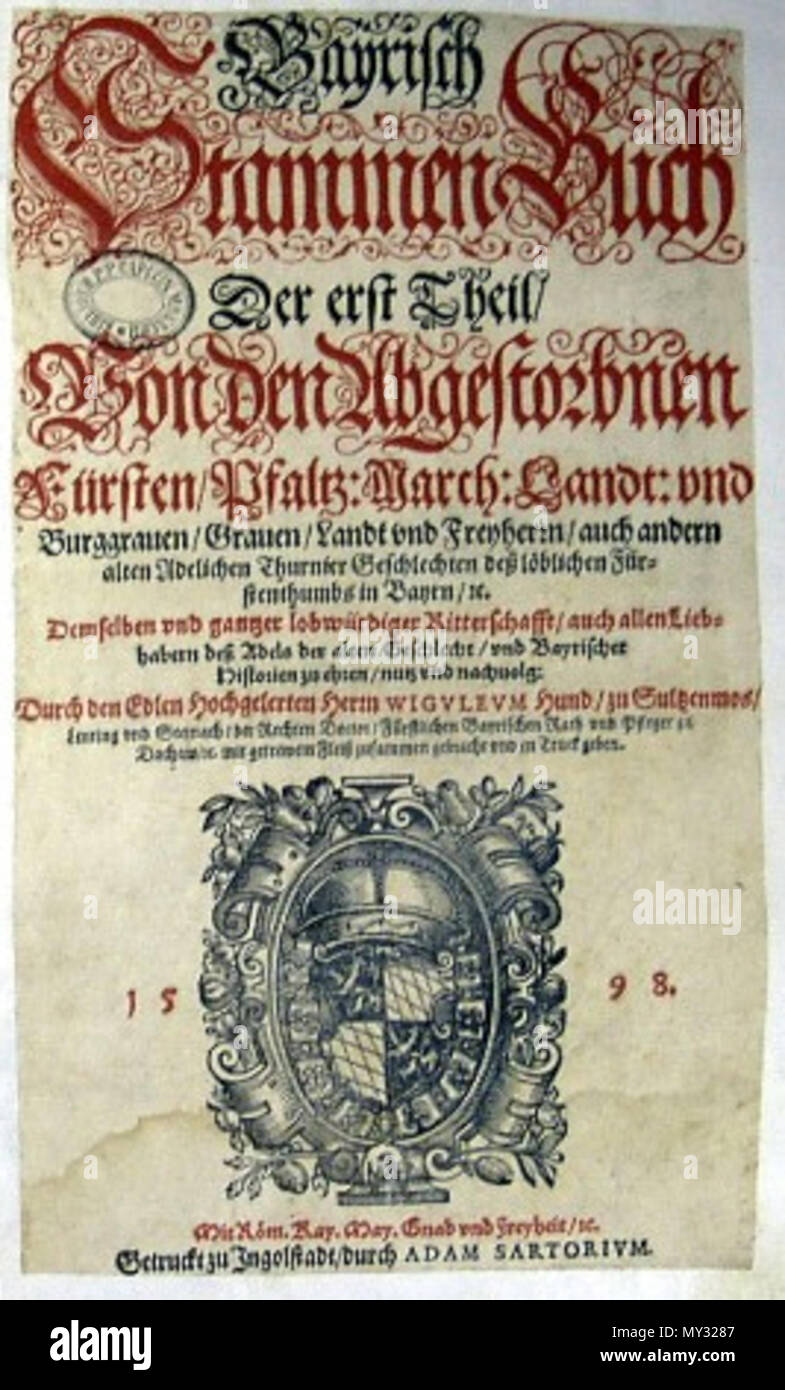 Bayrisch
Stammen Buch
Der erst Theil/
Von den Abgestorbnen
Fürsten/Pfaltz: March: Landt: vnd
Burggrauen/Grauen/Landt vnd Freyherrn/auch andern
alten Adelichen Thurnier Geschlechten deß löblichen Für-
stenthumbs in Bayrn/ꝛc.
Demselben vnd gantzer lobwürdiger Ritterschafft/auch allen Lieb-
habern deß Adels der alten Geschlecht/vnd Bayrischer
Historien zu ehren/nutz vnd nachuolg:
Durch den Edlen Hochgelerten Herrn WIGVLEVM Hund/zu Sultzenmos/
vnd der Rechten Doctor/Fürstlichen Bayrischen Rath vnd Pfleger zu
Dachau/ꝛc. mit getrewem Fleiß zusammen gebracht vnd in Truck geben.
1 5 9 8.
Mit Röm. Kay. May. Gnad vnd Freyheit/ꝛc.
Getruckt zu Ingolstadt/durch ADAM SARTORIVM.
a alamy stock photo
alamy
alamy
alamy
Image ID: MY3287
www.alamy.com